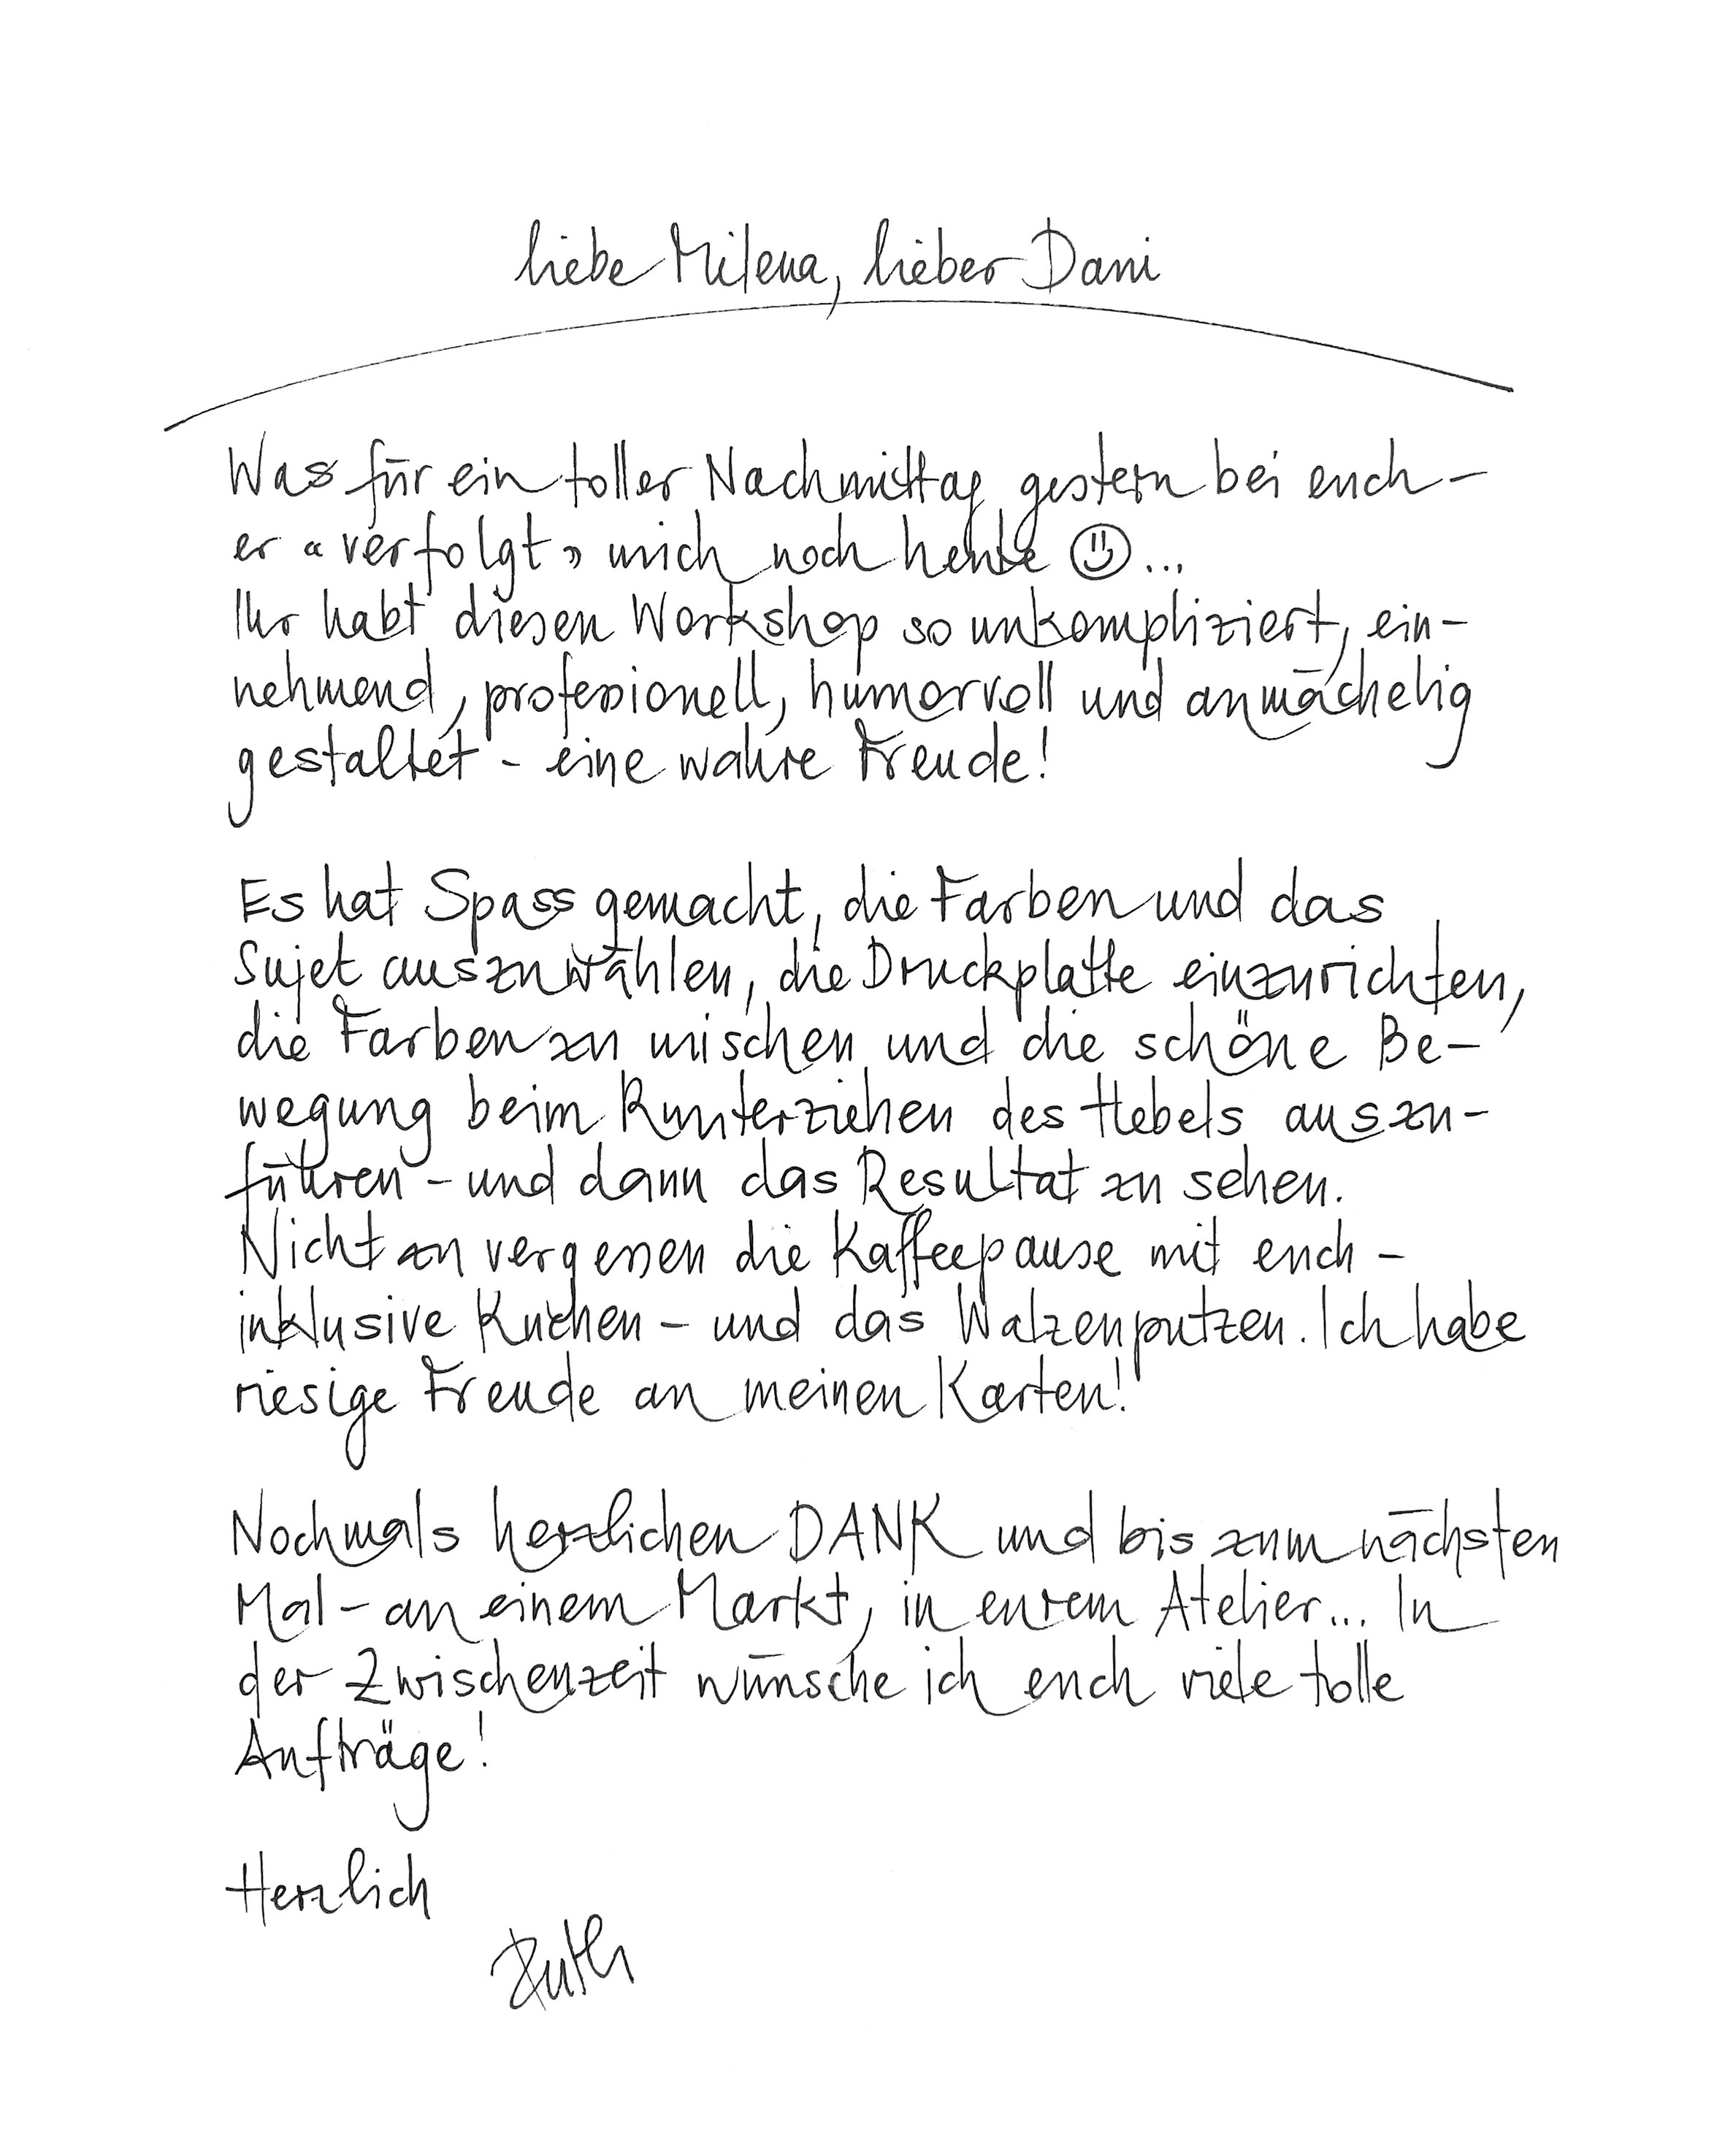 liebe Milena, lieber Dani
Was für ein toller Nachmittag gestern bei euch –
er «verfolgt» mich noch heute ☺...
Ihr habt diesen Workshop so unkompliziert, ein-
nehmend, professionell, humorvoll und anmächelig
gestaltet - eine wahre Freude!
Es hat Spass gemacht, die Farben und das
Sujet auszuwählen, die Druckplatte einzurichten,
die Farben zu mischen und die schöne Be-
wegung beim Runterziehen des Hebels auszu-
führen - und dann das Resultat zu sehen.
Nicht zu vergessen die Kaffeepause mit euch -
inklusive Kuchen - und das Walzenputzen. Ich habe
riesige Freude an meinen Karten!
Nochmals herzlichen DANK und bis zum nächsten
Mal - an einem Markt, in eurem Atelier... In
der Zwischenzeit wünsche ich euch viele tolle
Aufträge!
Herzlich
Ruth